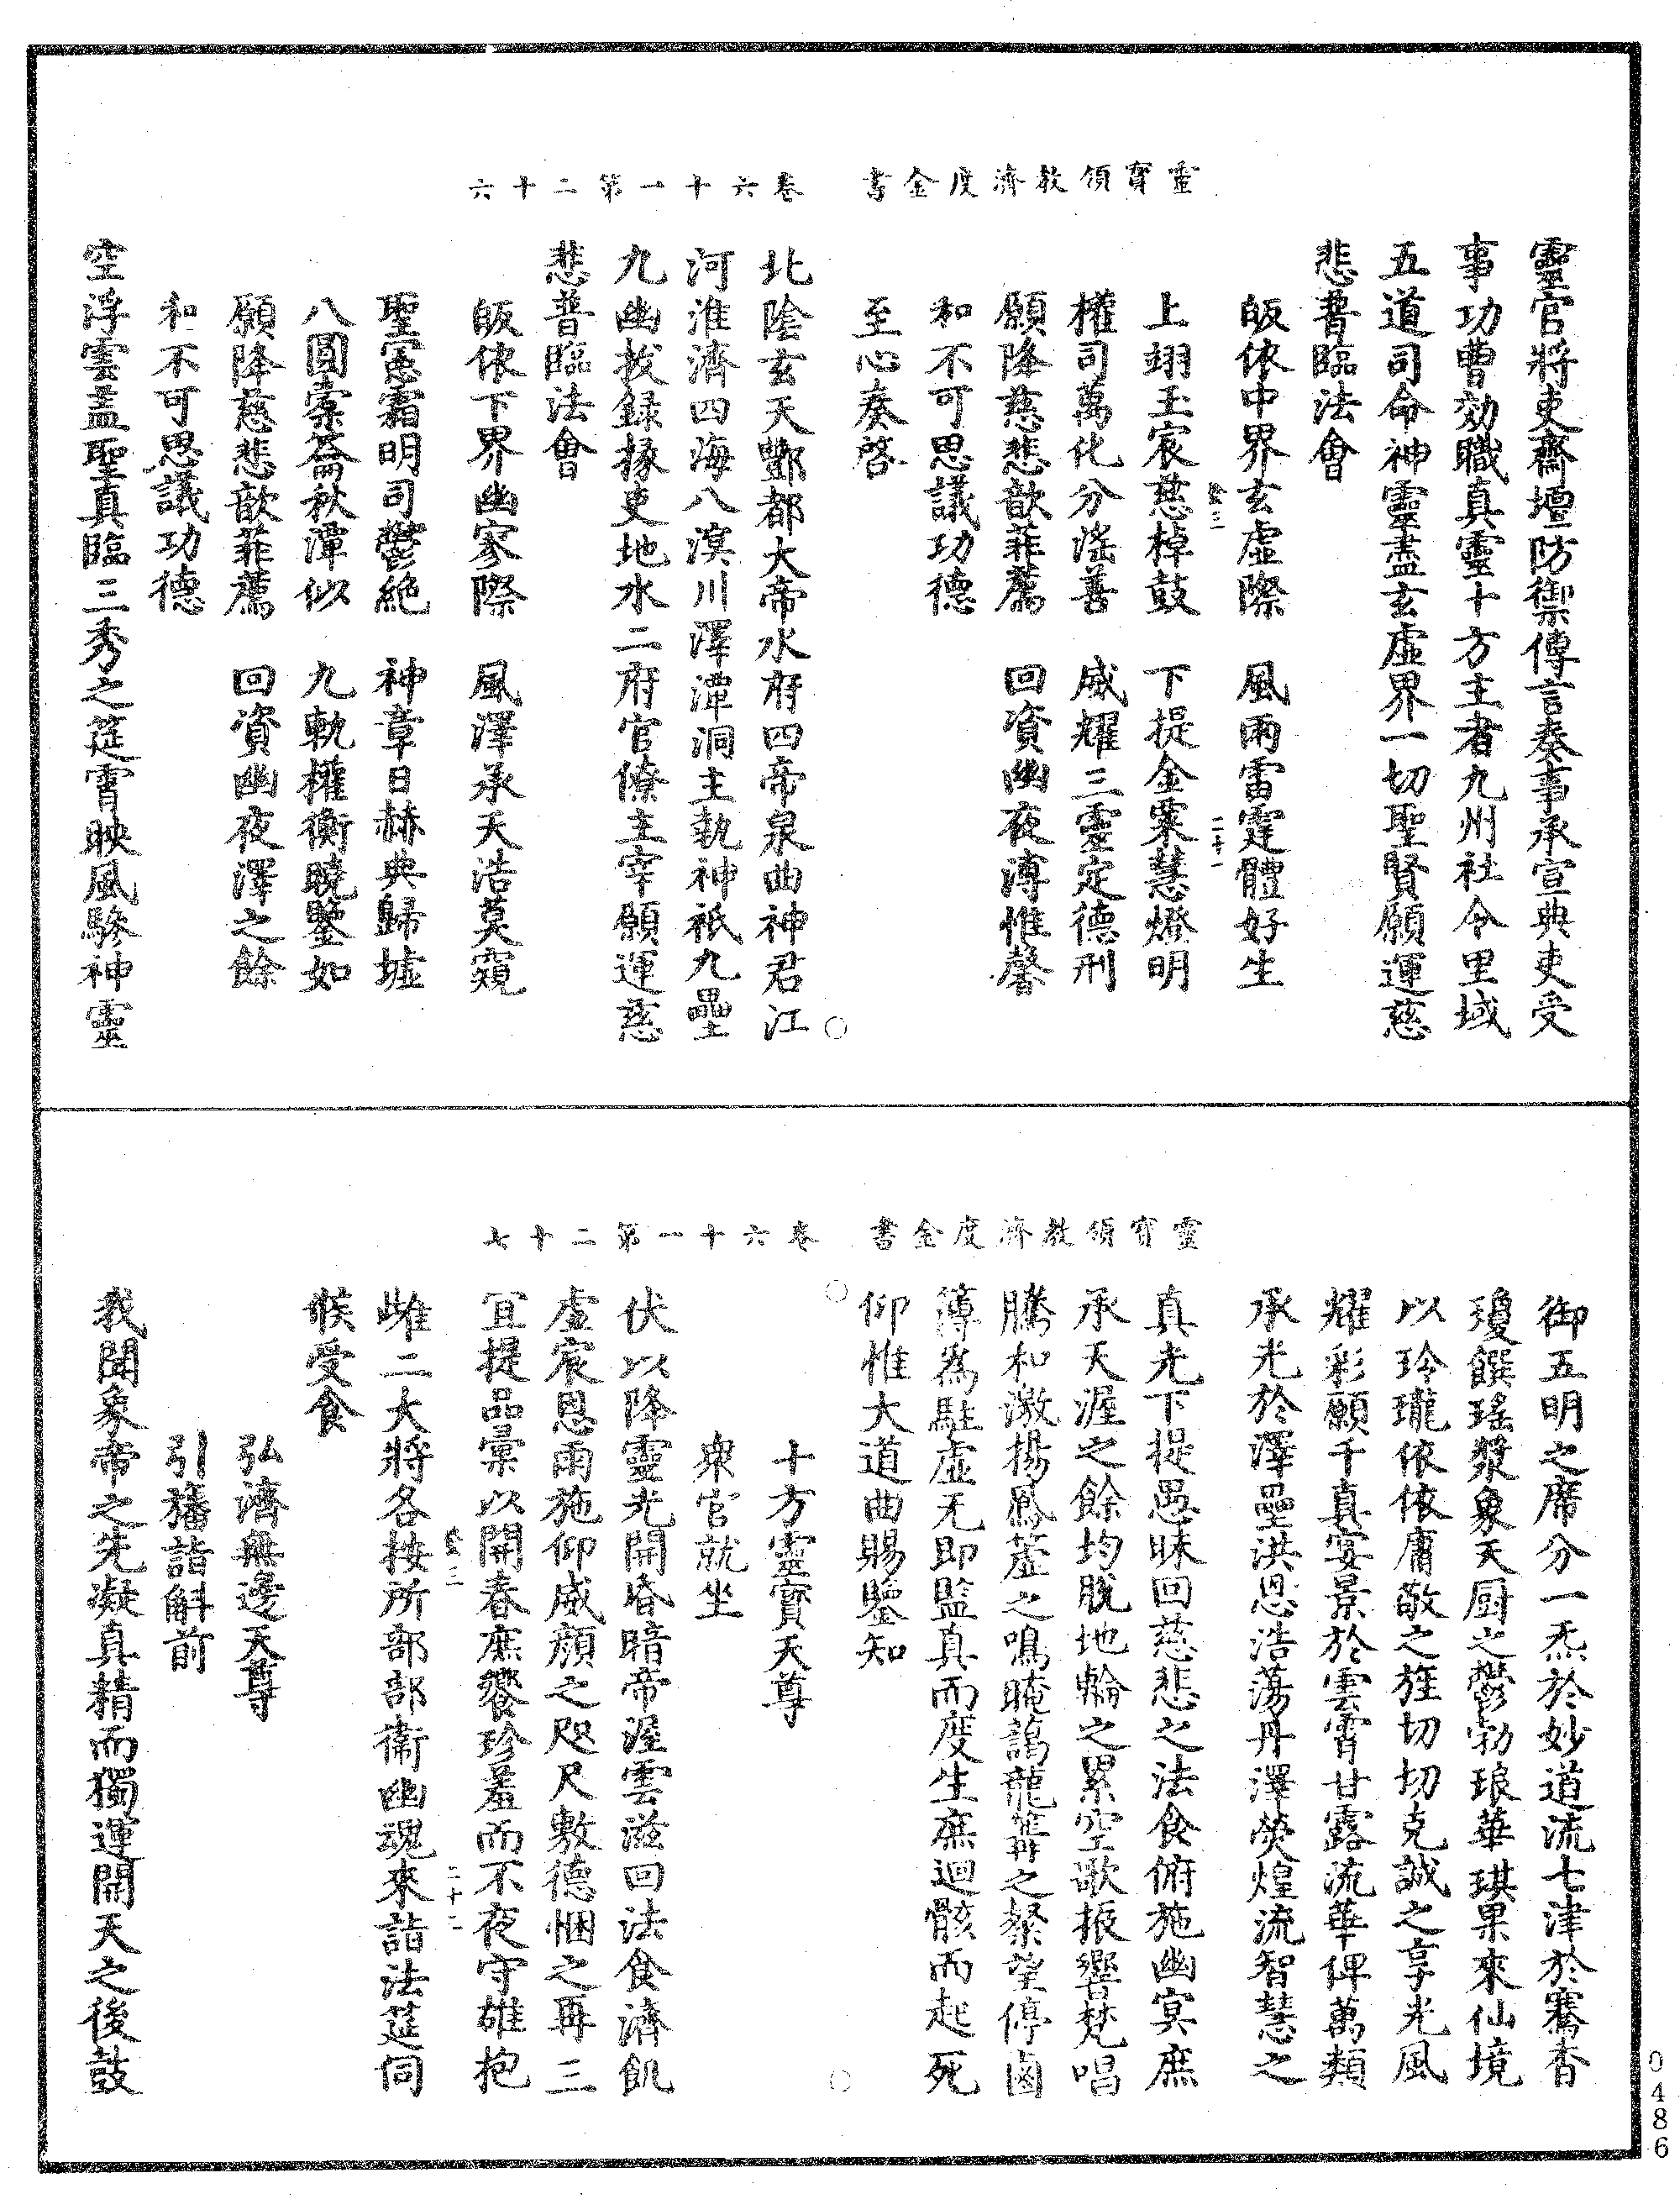 靈寶領教濟度金書　卷六十一第二十六
靈官將吏齋壇防禦傳言奏事承宣典吏受
事功曹効職真靈十方主者九州社令里域
五道司命神靈盡玄虛界一切聖賢願運慈
悲普臨法會
皈依中界玄虛際　風雨雷霆體好生
上翊玉宸慈棹鼓　下提金粟慧燈明
權司萬化分滛善　威耀三靈定德刑
願降慈悲歆菲薦　回資幽夜溥惟馨
和不可思議功德
至心奏啓
北陰玄天酆都大帝水府四帝泉曲神君江
河淮濟四海八溟川澤潭洞主執神祇九壘
九幽拔録掾吏地水二府官僚主宰願運慈
悲普臨法會
皈依下界幽寥際　風澤承天浩莫窺
聖寃霜明司鬱絶　神章日赫典歸墟
八圓橐籥秋潭似　九軌權衡曉鑒如
願降慈悲歆菲薦　回資幽夜澤之餘
和不可思議功德
空浮雲盖聖真臨三秀之莚霄映風驂神靈
靈寶領教濟度金書　卷六十一第二十七
御五明之席分一炁於妙道流七津於騫香
瓊饌瑤漿象天厨之鬱勃琅華琪果來仙境
以玲瓏依依庸敬之旌切切克誠之享光風
耀彩願千真宴景於雲霄甘露流華俾萬類
承光於澤壘洪恩浩蕩丹澤熒煌流智慧之
真光下提愚昧回慈悲之法食俯施幽冥庶
承天渥之餘均脫地輪之累空歌振響梵唱
騰和激揚鳳䇸之鳴晻藹龍篝之粲望停鹵
簿為駐虛无即監真而度生庶迴骸而起死
仰惟大道曲賜鑒知
十方靈寶天尊
衆官就坐
伏以降靈光開昏暗帝渥雲滋回法食濟飢
虛宸恩雨施仰威顔之咫尺敷德悃之再三
宜提品彚以開春庶饗珍羞而不夜守雄抱
雌二大將各按所部部衛幽魂來詣法莚伺
候受食
弘濟無邊天尊
引旛詣斛前
我聞象帝之先凝真精而獨運開天之後鼓
0486